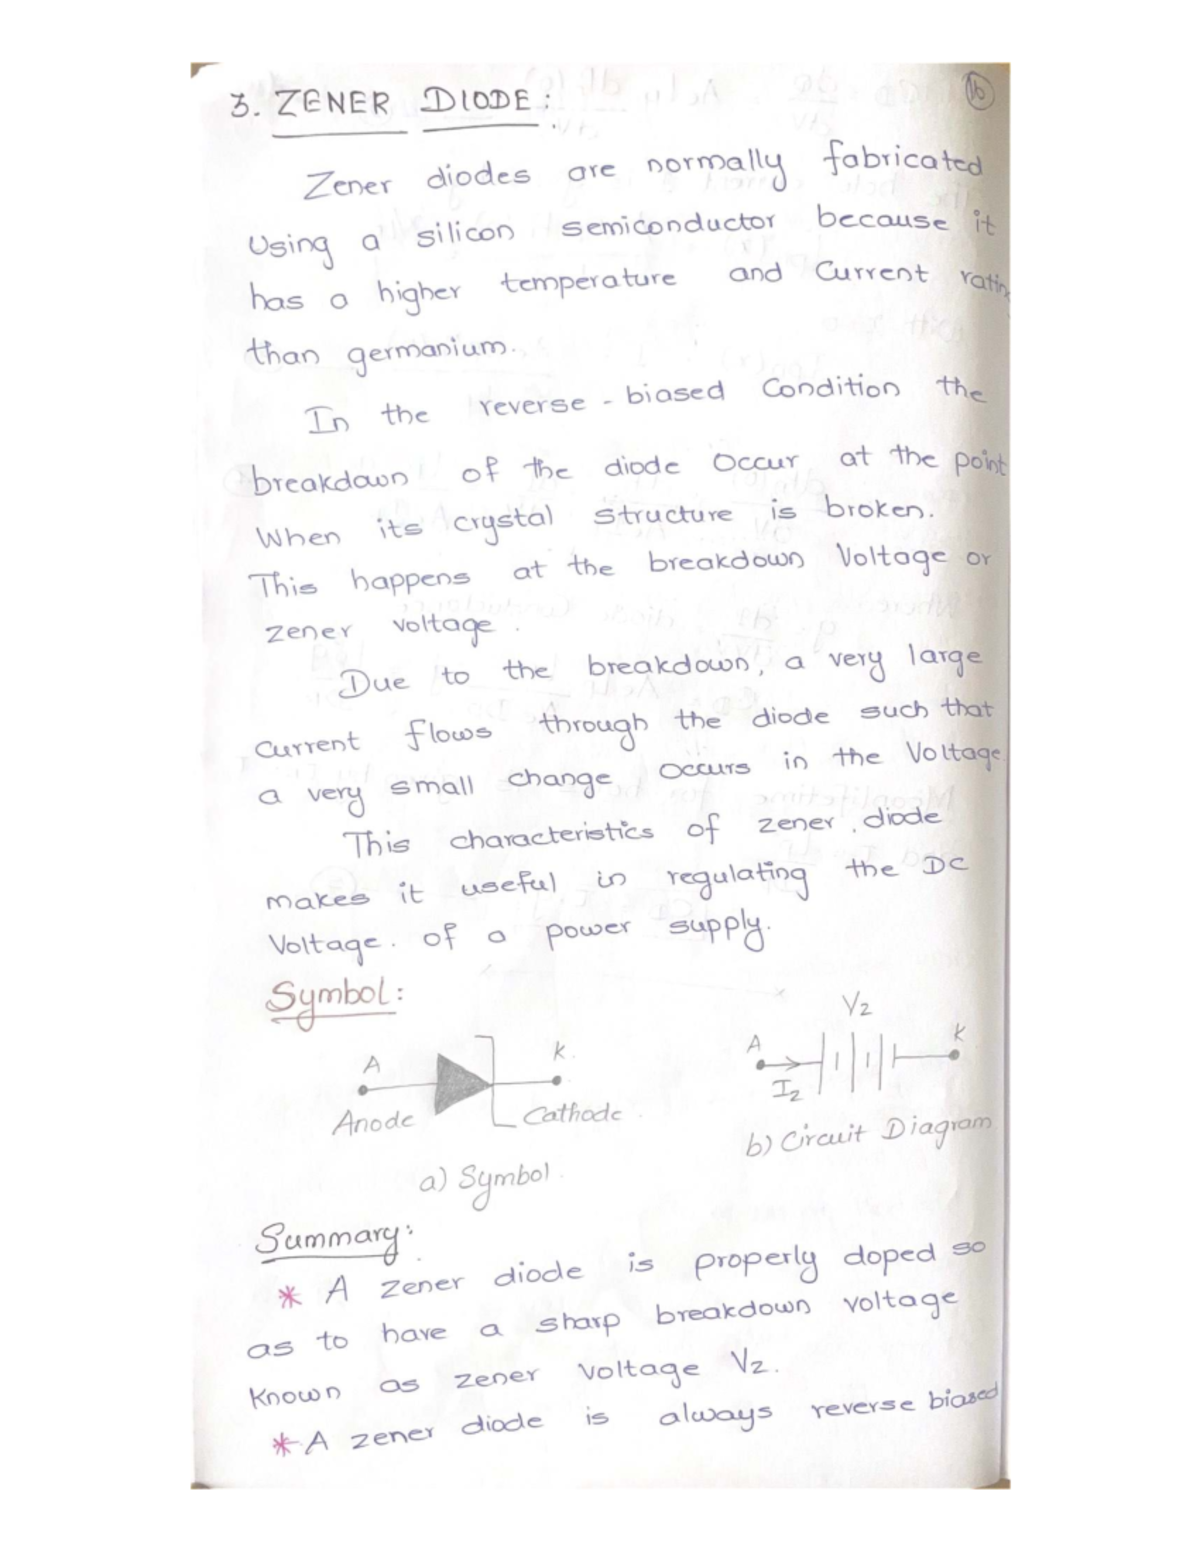 16
3. ZENER DIODE:
Zener diodes are normally fabricated
Using a silicon semiconductor because it
has a higher temperature and Current
than germanium.
In the reverse-biased Condition the
breakdown of the diode Occur at the point
When its crystal structure is broken.
This happens at the breakdown Voltage or
zener voltage.
Due to the breakdown, a very large
Current flows through the diode such that
a very small change occurs in the Voltage
This characteristics of zener diode
makes it useful in regulating the DC
Voltage. of a power supply.
Symbol:
A K.
Anode Cathode
a) Symbol.
Vz
A K
Iz
b) Circuit Diagram
Summary:
* A zener diode is properly doped so
as to have a sharp breakdown voltage
known as zener voltage Vz.
* A zener diode is always reverse biased